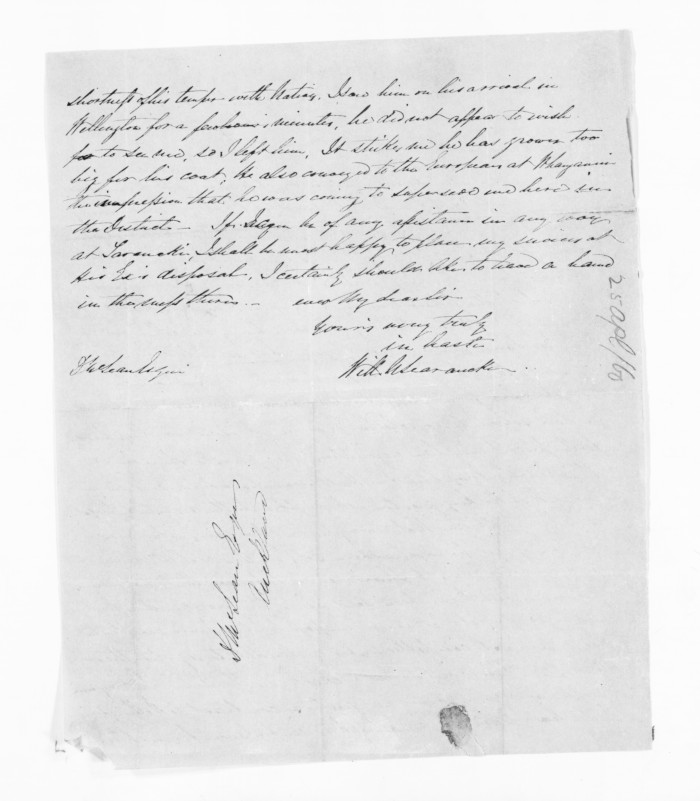 shortness of his temper with Natives, I saw him on his arrival in
Wellington for a few minutes, he did not appear to wish
to see me, so I left him, It strikes me he has grown too
big for his coat, He also conveyed to the Europeans at Whanganui
the impression that he was coming to supersede me here in
the District — If I can be of any assistance in any way
at Taranaki, I shall be most happy to place my services at
His Ex's disposal, I certainly should like to have a hand
in the mess there. — ever My dear Sir
Yours very truly
in haste
D McLean Esquire
Will. N Searancke
25 Apl /60
D McLean Esqre
Auckland